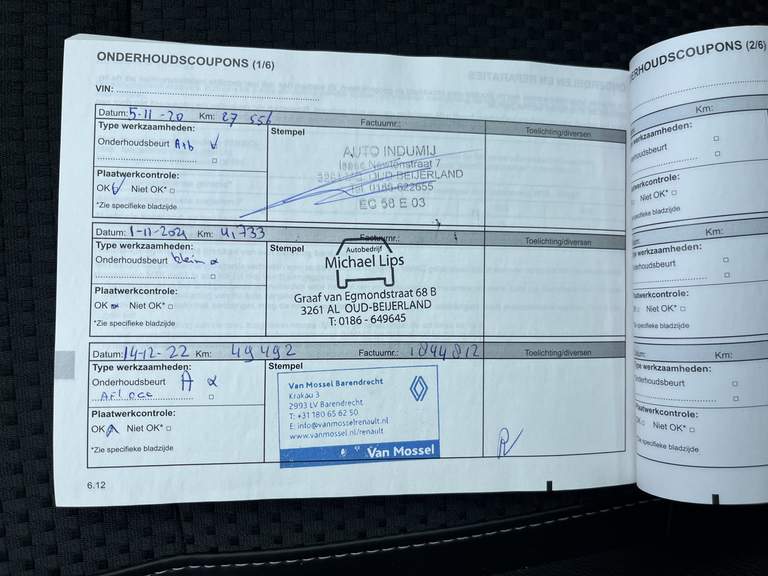 ONDERHOUDSCOUPONS (1/6)
VIN:
Datum: 5-11-20 Km: 27 556 Factuurnr.: Toelichting/diversen
Type werkzaamheden:
Onderhoudsbeurt A+b
Stempel
AUTO INDUMIJ
Isaac Newtonstraat 7
OUD-BEIJERLAND
Tel. 0186-622655
EC 58 E 03
Plaatwerkcontrole:
OK Niet OK*
*Zie specifieke bladzijde
Datum: 1-11-2021 Km: 41,733 Factuurnr.: Toelichting/diversen
Type werkzaamheden:
Onderhoudsbeurt klein
Stempel
Autobedrijf
Michael Lips
Graaf van Egmondstraat 68 B
3261 AL OUD-BEIJERLAND
T: 0186 - 649645
Plaatwerkcontrole:
OK Niet OK*
*Zie specifieke bladzijde
Datum: 14-12-22 Km: 49492 Factuurnr.: 1894812 Toelichting/diversen
Type werkzaamheden:
Onderhoudsbeurt A
Stempel
Van Mossel Barendrecht
Krakau 3
2993 LV Barendrecht
T: +31 180 65 62 50
E: info@vanmosselrenault.nl
www.vanmossel.nl/renault
Van Mossel
Plaatwerkcontrole:
OK Niet OK*
*Zie specifieke bladzijde
6.12
ERHOUDSCOUPONS (2/6)
Km:
werkzaamheden:
rhoudsbeurt
werkcontrole:
Niet OK*
specifieke bladzijde
Km:
werkzaamheden:
nderhoudsbeurt
laatwerkcontrole:
Niet OK*
*Zie specifieke bladzijde
Km:
ype werkzaamheden:
Onderhoudsbeurt
Plaatwerkcontrole:
OK Niet OK*
*Zie specifieke bladzijde